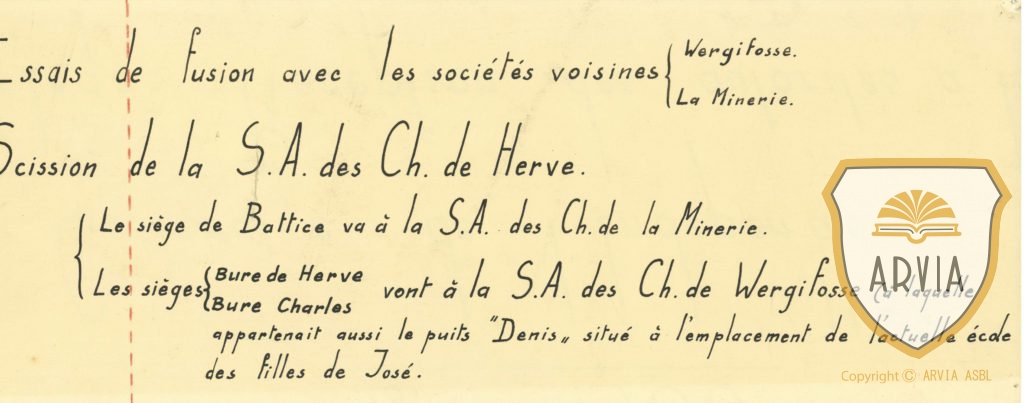 Essais de fusion avec les sociétés voisines { Wergifosse.
La Minerie.
Scission de la S.A. des Ch. de Herve.
Le siège de Battice va à la S.A. des Ch. de la Minerie.
Les sièges { Bure de Herve
Bure Charles
vont à la S.A. des Ch. de Wergifosse (à laquelle
appartenait aussi le puits "Denis„ situé à l'emplacement de l'actuelle école
des filles de José.
ARVIA
Copyright © ARVIA ASBL